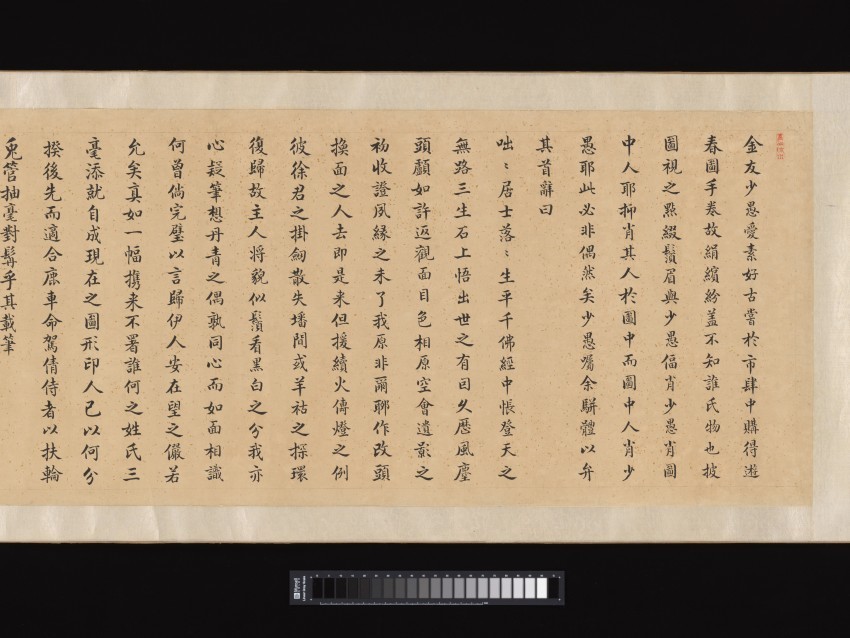 金友少愚愛素好古嘗於市肆中購得遊
春圖手卷故絹繽紛蓋不知誰氏物也披
圖視之點綴鬚眉與少愚偪肖少愚肖圖
中人耶抑肖其人於圖中而圖中人肖少
愚耶此必非偶然矣少愚囑余駢體以弁
其首辭曰
咄〻居士落〻生平千佛經中悵登天之
無路三生石上悟出世之有因久歷風塵
頭顱如許返觀面目色相原空會遺影之
初收證夙緣之未了我原非爾聊作改頭
換面之人去即是来但援續火傳燈之例
彼徐君之掛劍散失墦間或羊祜之探環
復歸故主人將貌似鬚看黑白之分我亦
心疑筆想丹青之偶孰同心而如面相識
何曾倘完璧以言歸伊人安在望之儼若
允矣真如一幅携来不署誰何之姓氏三
毫添就自成現在之圖形印人已以何分
揆後先而適合鹿車命駕倩侍者以扶輪
兎管抽毫對髯乎其載筆